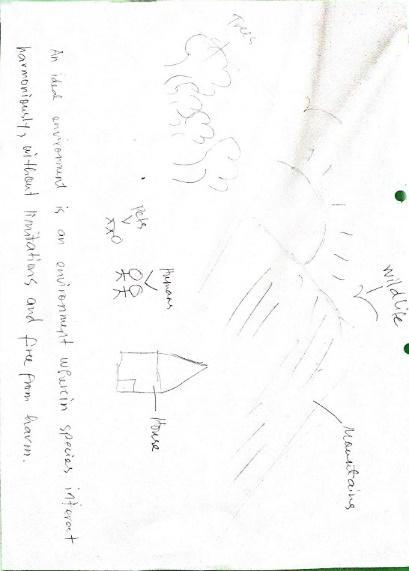 Trees
wildlife
Mountains
Pets
Humans
House
An ideal environment is an environment wherein species interact
harmoniously, without limitations and free from harm.